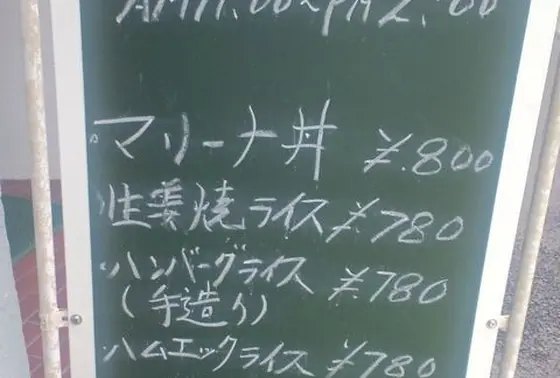 AM11:00~PM2:00
・マリーナ丼 ¥.800
・生姜焼ライス ¥780
・ハンバーグライス ¥.780
(手造り)
・ハムエックライス ¥780